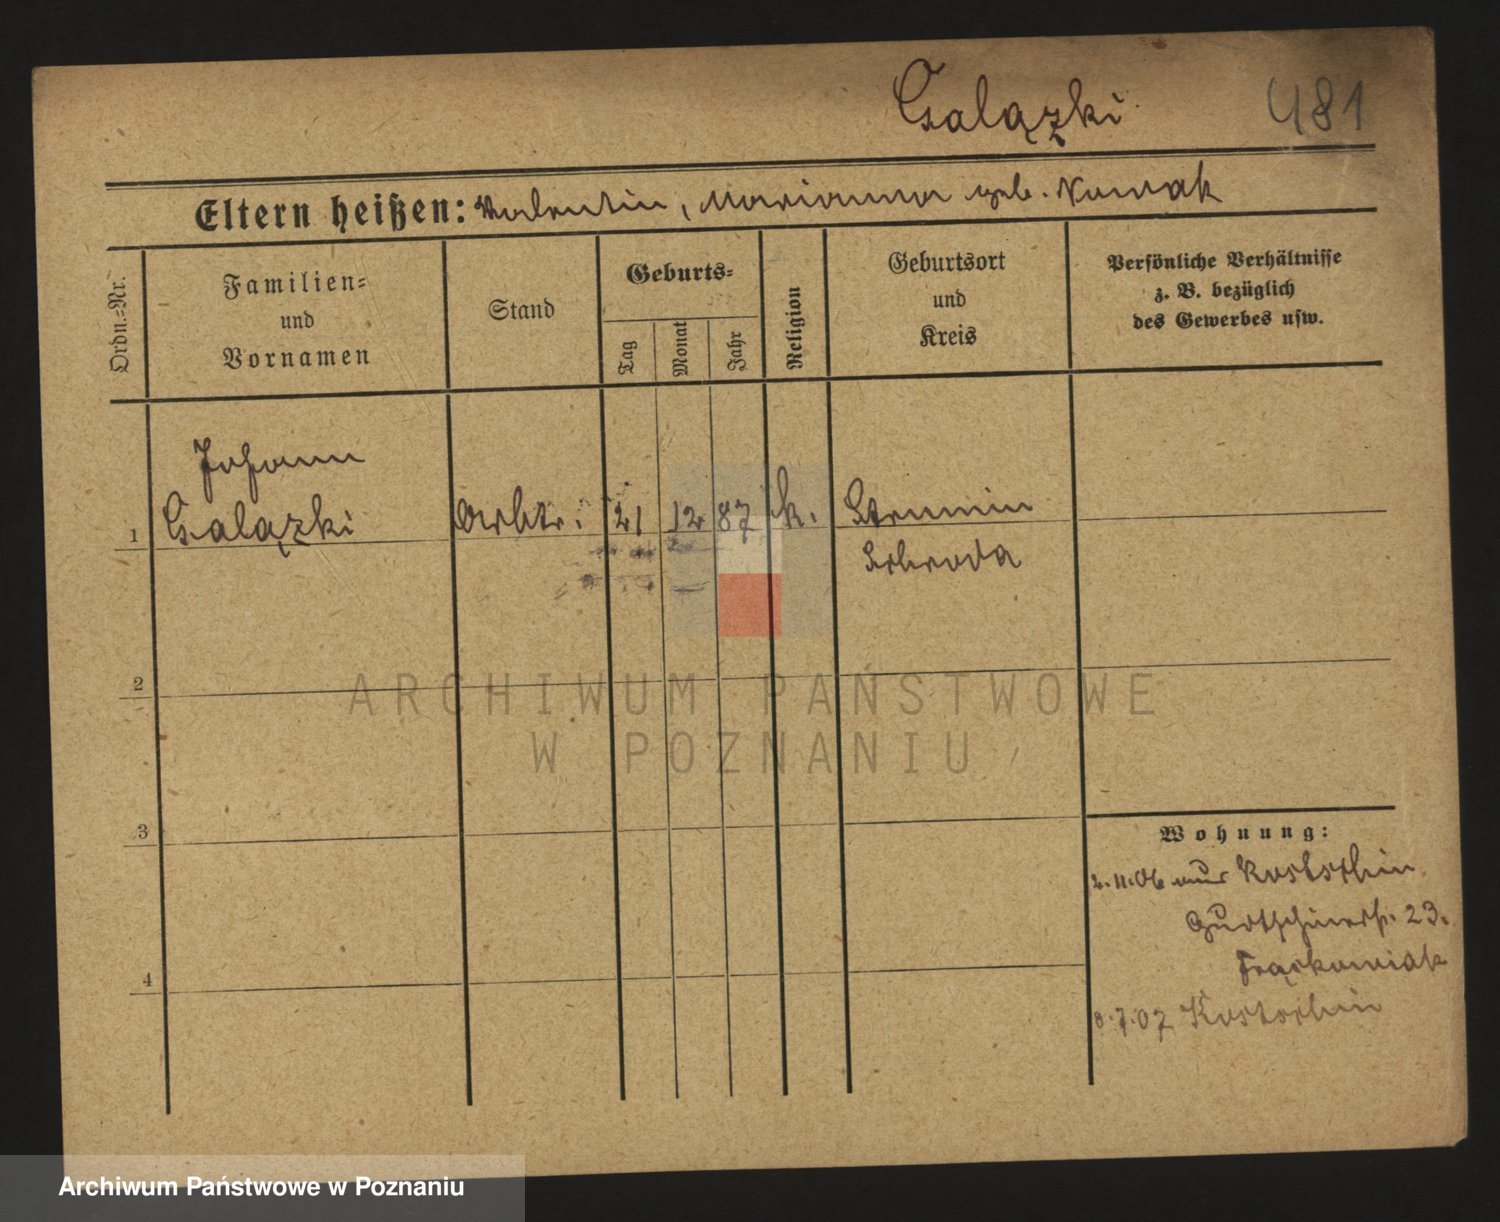 Galązki 481
Eltern heißen: Valentin, Marianna geb. Nowak
Ordn.=Nr.
Familien=
und
Vornamen
Stand
Geburts=
Tag
Monat
Jahr
Religion
Geburtsort
und
Kreis
Persönliche Verhältnisse
z. B. bezüglich
des Gewerbes usw.
Johann
1 Galązki Arbtr. 21 12 87 k. Strumin
Schroda
2
3
4
Wohnung:
2.11.06 aus Kostschin
Gurtschinerstr. 23.
Frąckowiak
8.7.07 Kostschin
ARCHIWUM PAŃSTWOWE
W POZNANIU
Archiwum Państwowe w Poznaniu